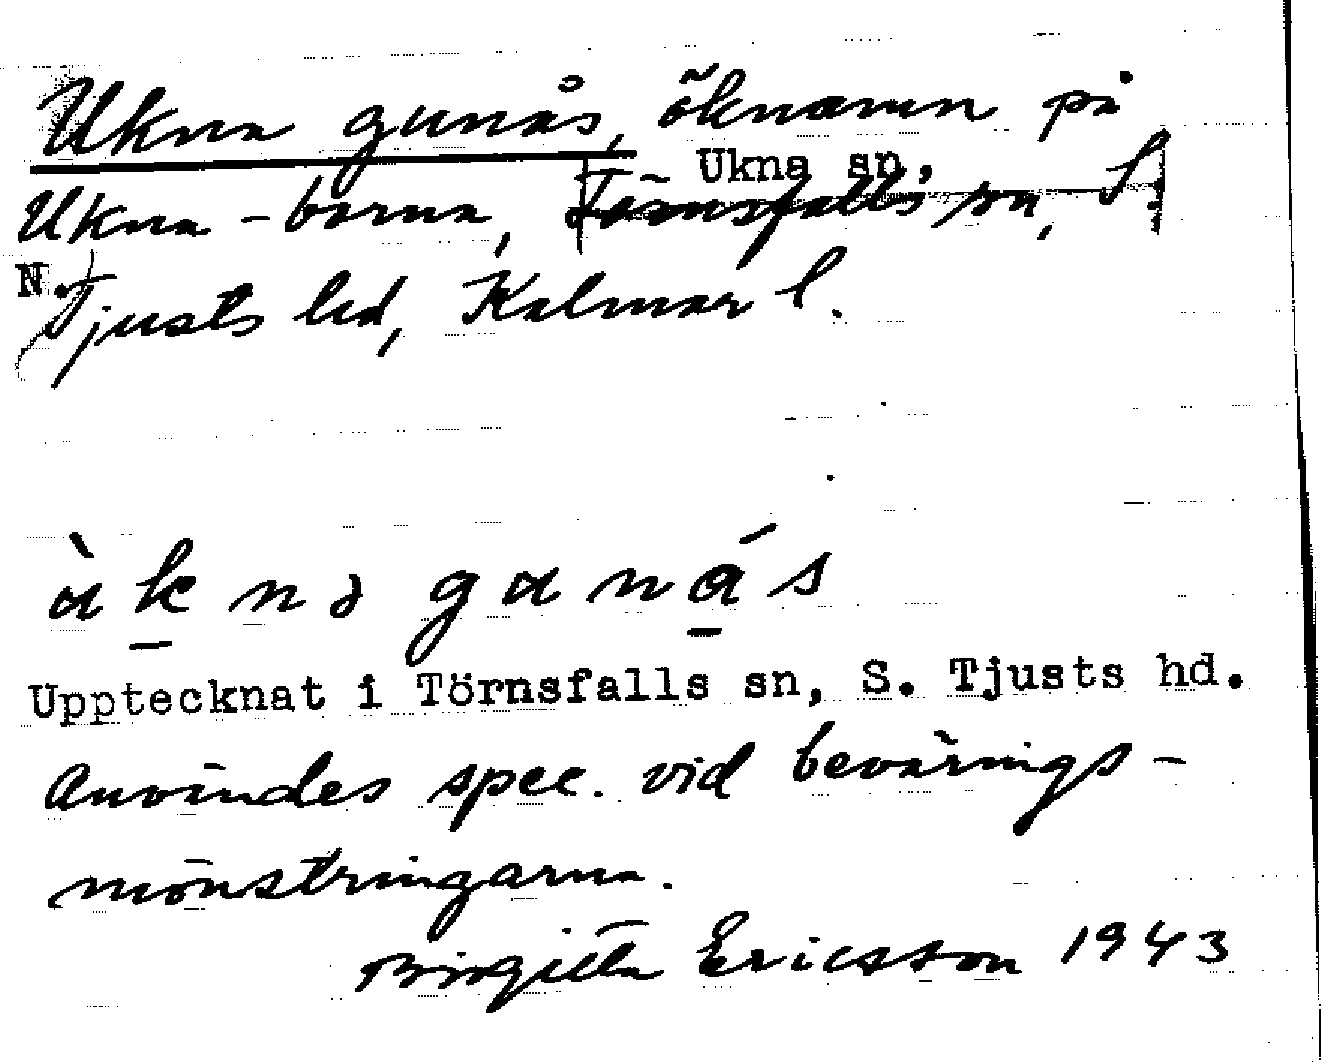 Ukna gunås, öknamn på
Ukna sn,
Ukna-borna, [Törnsfalls sn, S.]
N. Tjusts hd, Kalmar l.
ùknə gunås
Upptecknat i Törnsfalls sn, S. Tjusts hd.
Användes spec. vid bevärings-
mönstringarna.
Birgitta Ericsson 1943